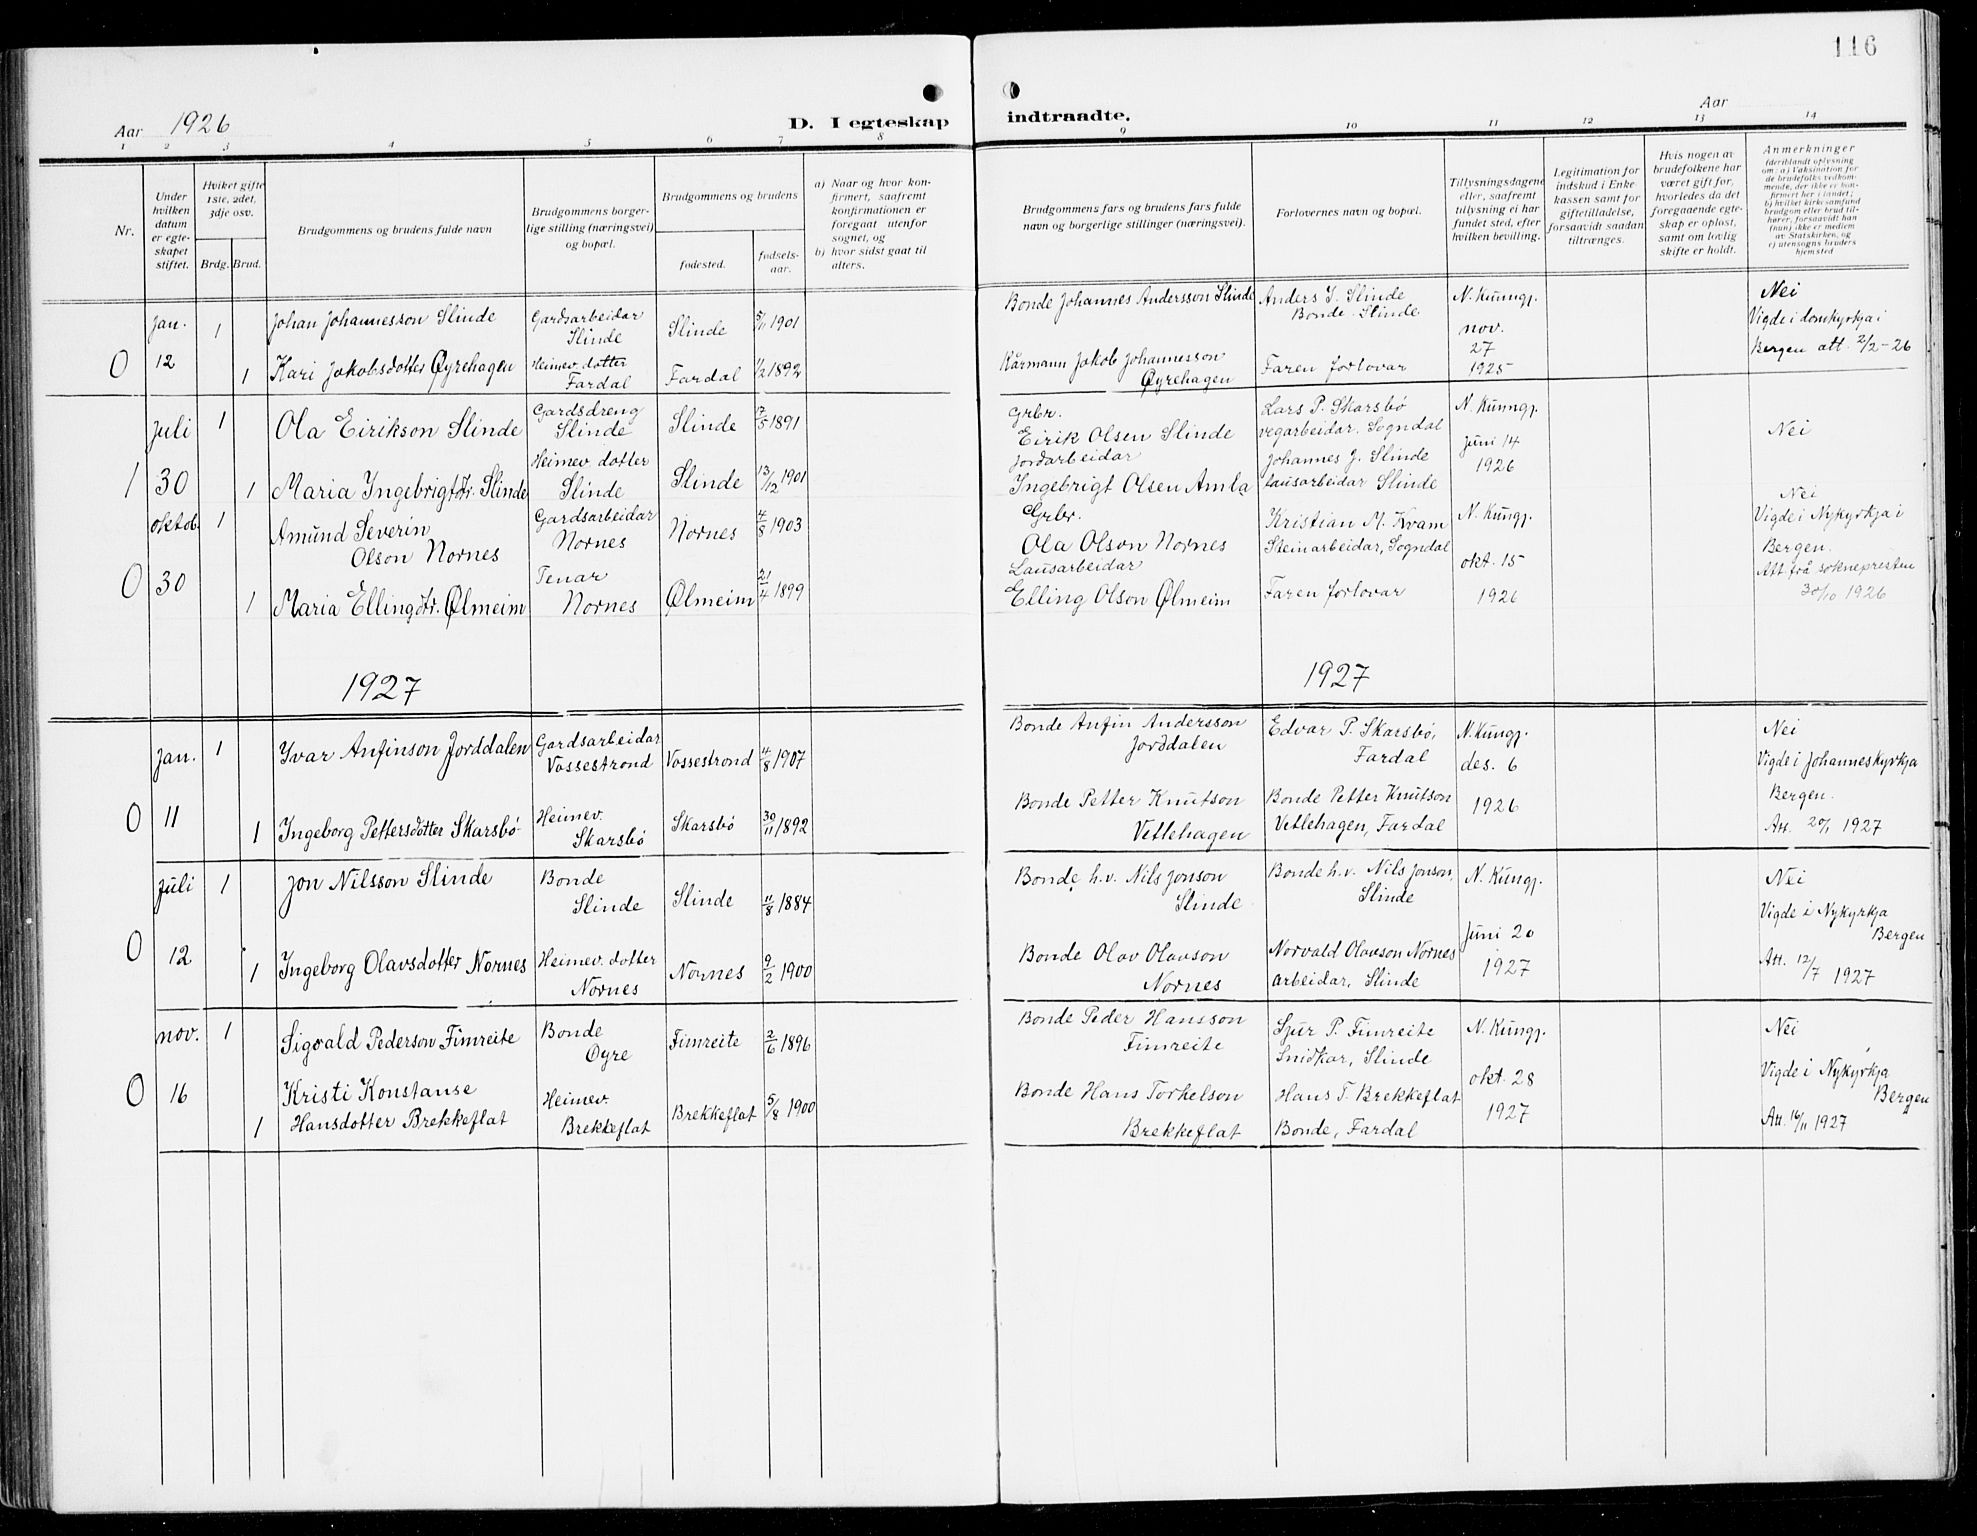 116
Aar 1926
D. I egteskap
indtraadte.
Aar
1 2 3 4 5 6 7 8 9 10 11 12 13 14
Nr.
Under
hvilken
datum
er egte-
skapet
stiftet.
Hvilket gifte
1ste, 2det,
3dje osv.
Brdg. Brud.
Brudgommens og brudens fulde navn
Brudgommens borger-
lige stilling (næringsvei)
og bopæl.
Brudgommens og brudens
fødested.
fødsels-
aar.
a) Naar og hvor kon-
firmert, saafremt
konfirmationen er
foregaat utenfor
sognet, og
b) hvor sidst gaat til
alters.
Brudgommens fars og brudens fars fulde
navn og borgerlige stillinger (næringsvei).
Forlovernes navn og bopæl.
Tillysningsdagene
eller, saafremt
tillysning ei har
fundet sted, efter
hvilken bevilling.
Legitimation for
indskud i Enke
kassen samt for
giftetilladelse,
forsaavidt saadan
tiltrænges.
Hvis nogen av
brudefolkene har
været gift før,
hvorledes da det
foregaaende egte-
skap er opløst,
samt om lovlig
skifte er holdt.
Anmerkninger
(deriblandt oplysning
om: a) Vaksination for
de brudefolks vedkom-
mende, der ikke er kon-
firmert her i landet;
b) hvilket kirkesamfund
brudgom eller brud til-
hører, forsaavidt han
(hun) ikke er medlem
av Statskirken, og
c) utensogns bruders
hjemsted
0
Jan.
12
1
Johan Johannesson Slinde
Gardsarbeidar
Slinde
Slinde
5/11 1901
1
Kari Jakobsdotter Øyrehagen
Heimev. dotter
Fardal
Fardal
1/2 1892
Bonde Johannes Andersson Slinde
Kårmann Jakob Johannesson
Øyrehagen
Anders J. Slinde
Bonde Slinde
Faren forlovar
N. Kunngj.
nov.
27
1925
Nei
Vigde i domkyrkja i
Bergen att. 2/2-26
1
Juli
30
1
Ola Eirikson Slinde
Gardsdreng
Slinde
Slinde
17/5 1891
1
Maria Ingebrigtdtr. Slinde
Heimev dotter
Slinde
Slinde
13/12 1901
Grbr.
Eirik Olsen Slinde
Jordarbeidar
Ingebrigt Olsen Amla
Lars P. Skarsbö
vegarbeidar. Sogndal
Johannes J. Slinde
lausarbeidar Slinde
N. Kunngj.
Juni 14
1926
Nei
0
oktob.
30
1
Amund Severin
Olson Nornes
Gardsarbeidar
Nornes
Nornes
4/8 1903
1
Maria Ellingdtr. Ølmeim
Tenar
Nornes
Ølmeim
21/4 1899
Grbr.
Ola Olson Nornes
Lausarbeidar
Elling Olson Ølmeim
Kristian M. Kvam
Steinarbeidar, Sogndal
Faren forlovar
N. Kungj.
okt. 15
1926
Nei
Vigde i Nykyrkja i
Bergen.
Att frå soknepresten
30/10 1926
1927
1927
0
Jan.
11
1
Yvar Anfinson Jorddalen
Gardsarbeidar
Vossestrond
Vossestrond
4/8 1907
1
Ingeborg Pettersdotter Skarsbö
Heimev.
Skarsbö
Skarsbö
30/11 1892
Bonde Anfin Andersson
Jorddalen
Bonde Petter Knutson
Vetlehagen
Edvar P. Skarsbö,
Fardal
Bonde Petter Knutson
Vetlehagen, Fardal
N. Kungj.
des. 6
1926
Nei
Vigde i Johanneskyrkja
Bergen.
Att. 20/1 1927
0
Juli
12
1
Jon Nilsson Slinde
Bonde
Slinde
Slinde
11/8 1884
1
Ingeborg Olavsdotter Nornes
Heimev. dotter
Nornes
Nornes
9/2 1900
Bonde h.v. Nils Jonson
Slinde
Bonde Olav Olavson
Nornes
Bonde h.v. Nils Jonson,
Slinde
Norvald Olavson Nornes
arbeidar, Slinde
N. Kungj.
Juni 20
1927
Nei
Vigde i Nykyrkja
Bergen
Att. 12/7 1927
0
nov.
16
1
Sigvald Pederson Fimreite
Bonde
Øyre
Fimreite
2/6 1896
1
Kristi Konstanse
Hansdotter Brekkeflat
Heimev.
Brekkeflat
Brekkeflat
5/8 1900
Bonde Peder Hansson
Fimreite
Bonde Hans Torkelson
Brekkeflat
Sjur P. Fimreite
Snidkar, Slinde
Hans T. Brekkeflat
Bonde, Fardal
N. Kungj.
okt. 28
1927
Nei
Vigde i Nykyrkja
Bergen
Att. 16/11 1927